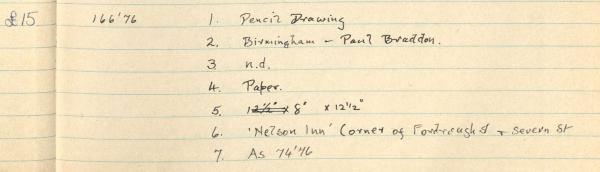 £15 166'76 1. Pencil Drawing
2. Birmingham - Paul Braddon.
3 n.d.
4. Paper.
5. 12½" x 8" x 12½"
6. 'Nelson Inn' Corner of Fordrough St + Severn St
7. As 74'76